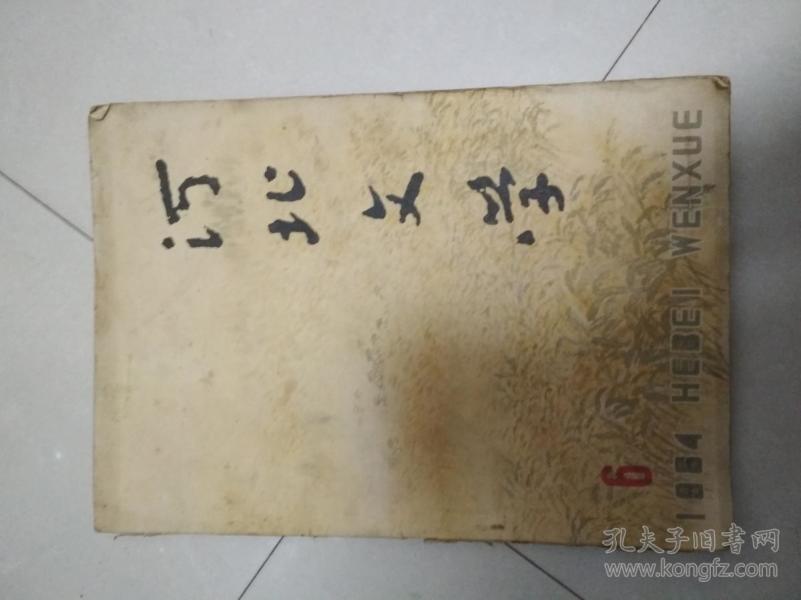 河北文学
6
1964 HEBEI WENXUE
孔夫子旧书网
www.kongfz.com